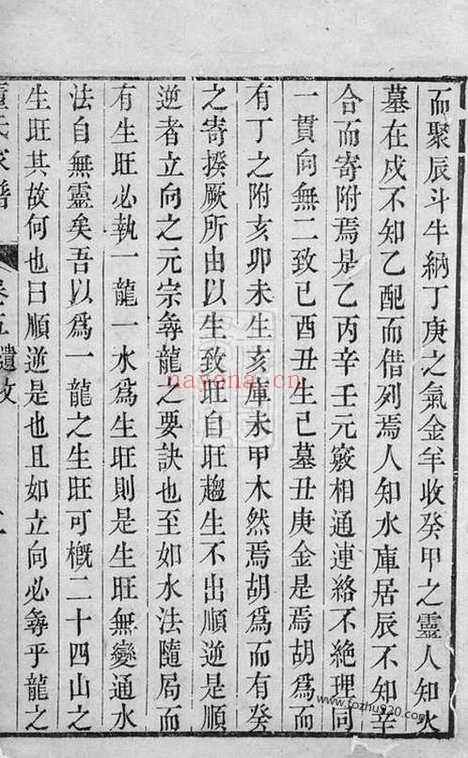 而聚辰斗牛納丁庚之氣金羊收癸甲之靈人知火
墓在戍不知乙配而借列焉人知水庫居辰不知辛
合而寄附焉是乙丙辛壬元竅相通連絡不絶理同
一貫向無二致已酉丑生已墓丑庚金是焉胡爲而
有丁之附亥卯未生亥庫未甲木然焉胡爲而有癸
之寄揆厥所由以生致旺自旺趨生不出順逆是順
逆者立向之元宗尋龍之要訣也至如水法隨局而
有生旺必執一龍一水爲生旺則是生旺無變通水
法自無靈矣吾以爲一龍之生旺可槪二十四山之
生旺其故何也曰順逆是也且如立向必尋乎龍之
董氏家譜 卷五 遺攷
nayona.cn
www.fozhu920.com